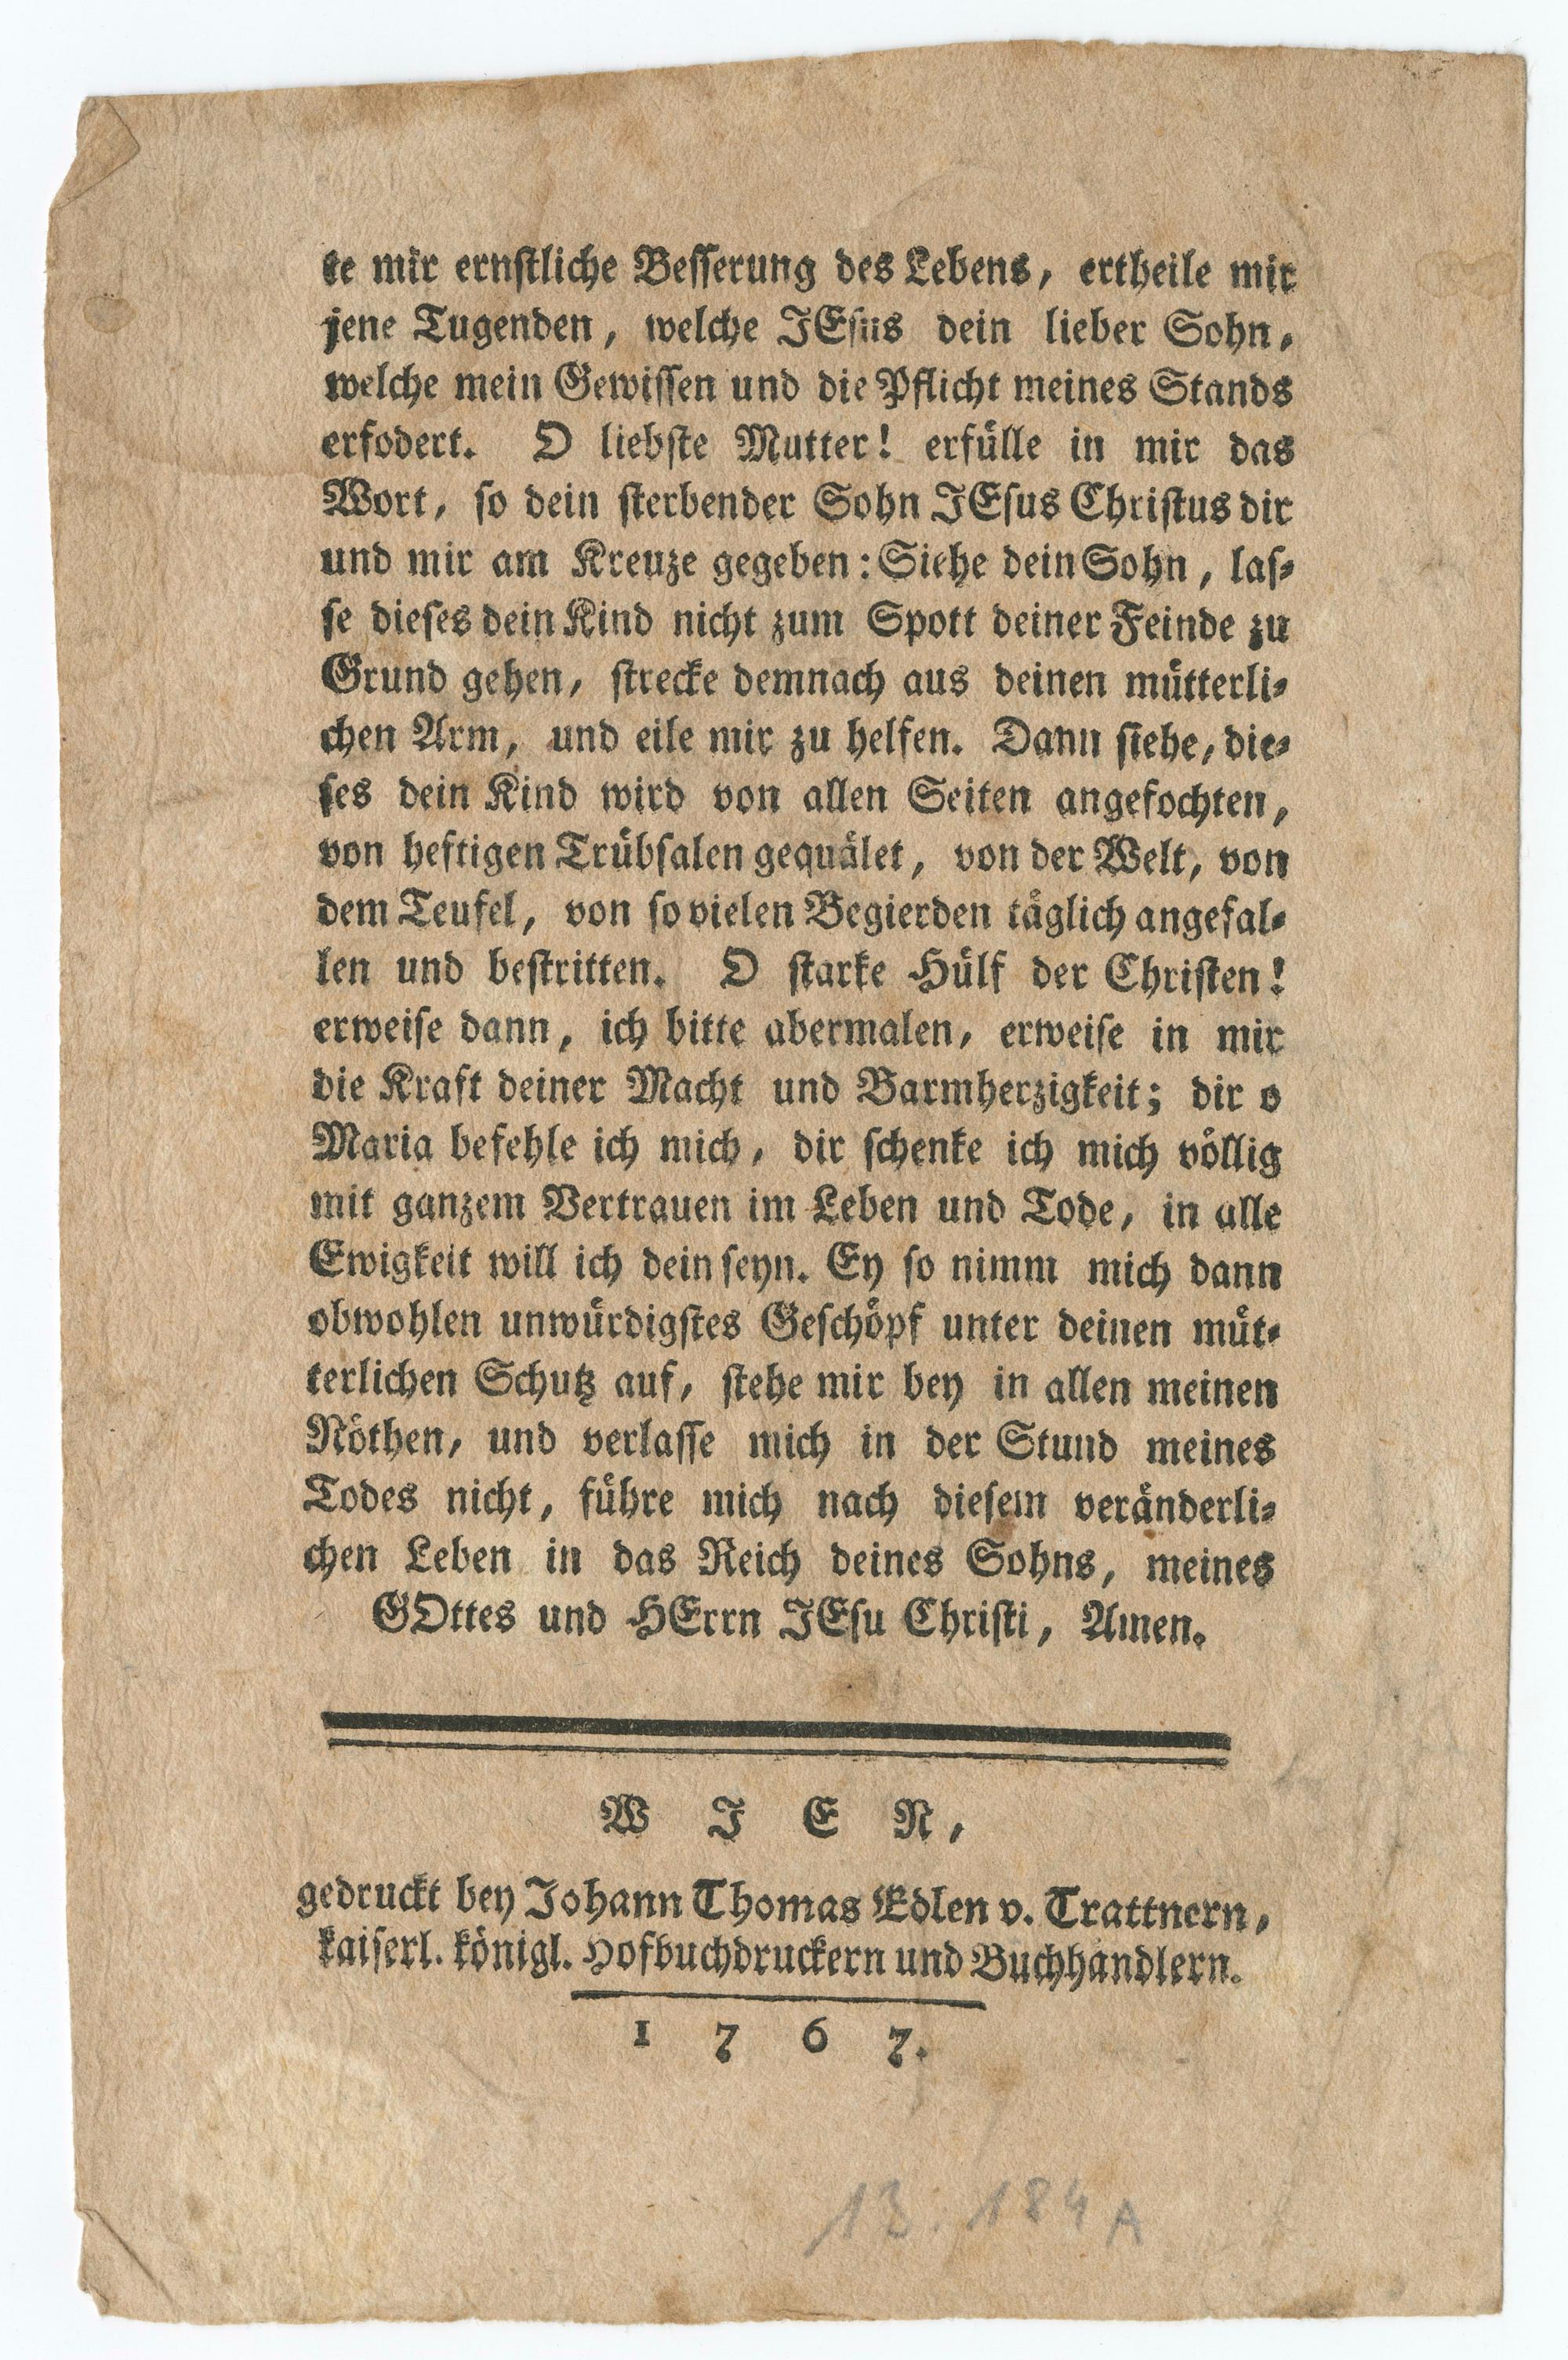 te mir ernstliche Besserung des Lebens, ertheile mir
jene Tugenden, welche JEsus dein lieber Sohn,
welche mein Gewissen und die Pflicht meines Stands
erfodert. O liebste Mutter! erfülle in mir das
Wort, so dein sterbender Sohn JEsus Christus dir
und mir am Kreuze gegeben: Siehe dein Sohn, las-
se dieses dein Kind nicht zum Spott deiner Feinde zu
Grund gehen, strecke demnach aus deinen mütterli-
chen Arm, und eile mir zu helfen. Dann siehe, die-
ses dein Kind wird von allen Seiten angefochten,
von heftigen Trübsalen gequälet, von der Welt, von
dem Teufel, von so vielen Begierden täglich angefal-
len und bestritten. O starke Hülf der Christen!
erweise dann, ich bitte abermalen, erweise in mir
die Kraft deiner Macht und Barmherzigkeit; dir o
Maria befehle ich mich, dir schenke ich mich völlig
mit ganzem Vertrauen im Leben und Tode, in alle
Ewigkeit will ich dein seyn. Ey so nimm mich dann
obwohlen unwürdigstes Geschöpf unter deinen müt-
terlichen Schutz auf, stehe mir bey in allen meinen
Nöthen, und verlasse mich in der Stund meines
Todes nicht, führe mich nach diesem veränderli-
chen Leben in das Reich deines Sohns, meines
GOttes und HErrn JEsu Christi, Amen.
WIEN,
gedruckt bey Johann Thomas Edlen v. Trattnern,
kaiserl. königl. Hofbuchdruckern und Buchhandlern.
1767.
13.184 A